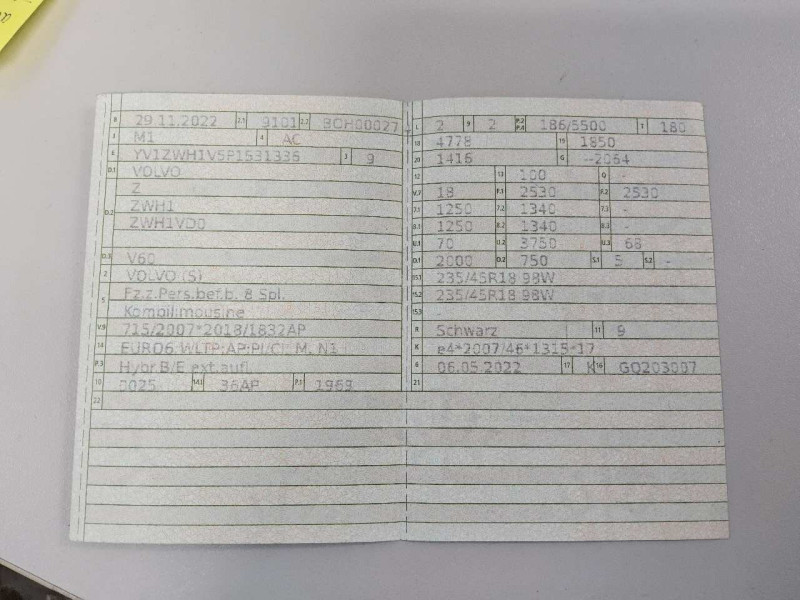 B 29.11.2022 2.1 9101 2.2 BOH00027
J M1 4 AC
E YV1ZWH1V5P1531336 3 9
D.1 VOLVO
Z
D.2 ZWH1
ZWH1VD0
D.3 V60
2 VOLVO (S)
5 Fz.z.Pers.bef.b. 8 Spl.
Kombilimousine
V.9 715/2007*2018/1832AP
14 EURO6 WLTP;AP;PI/CI M, N1
P.3 Hybr.B/E ext.aufl.
10 0025 14.1 36AP P.1 1969
22
L 2 9 2 P.2 P.4 186/5500 T 180
18 4778 19 1850
20 1416 G --2064
12 13 100 Q -
V.7 18 F.1 2530 F.2 2530
7.1 1250 7.2 1340 7.3 -
8.1 1250 8.2 1340 8.3 -
U.1 70 U.2 3750 U.3 68
O.1 2000 O.2 750 S.1 5 S.2 -
15.1 235/45R18 98W
15.2 235/45R18 98W
15.3
R Schwarz 11 9
K e4*2007/46*1315*17
6 06.05.2022 17 K 16 GO203007
21